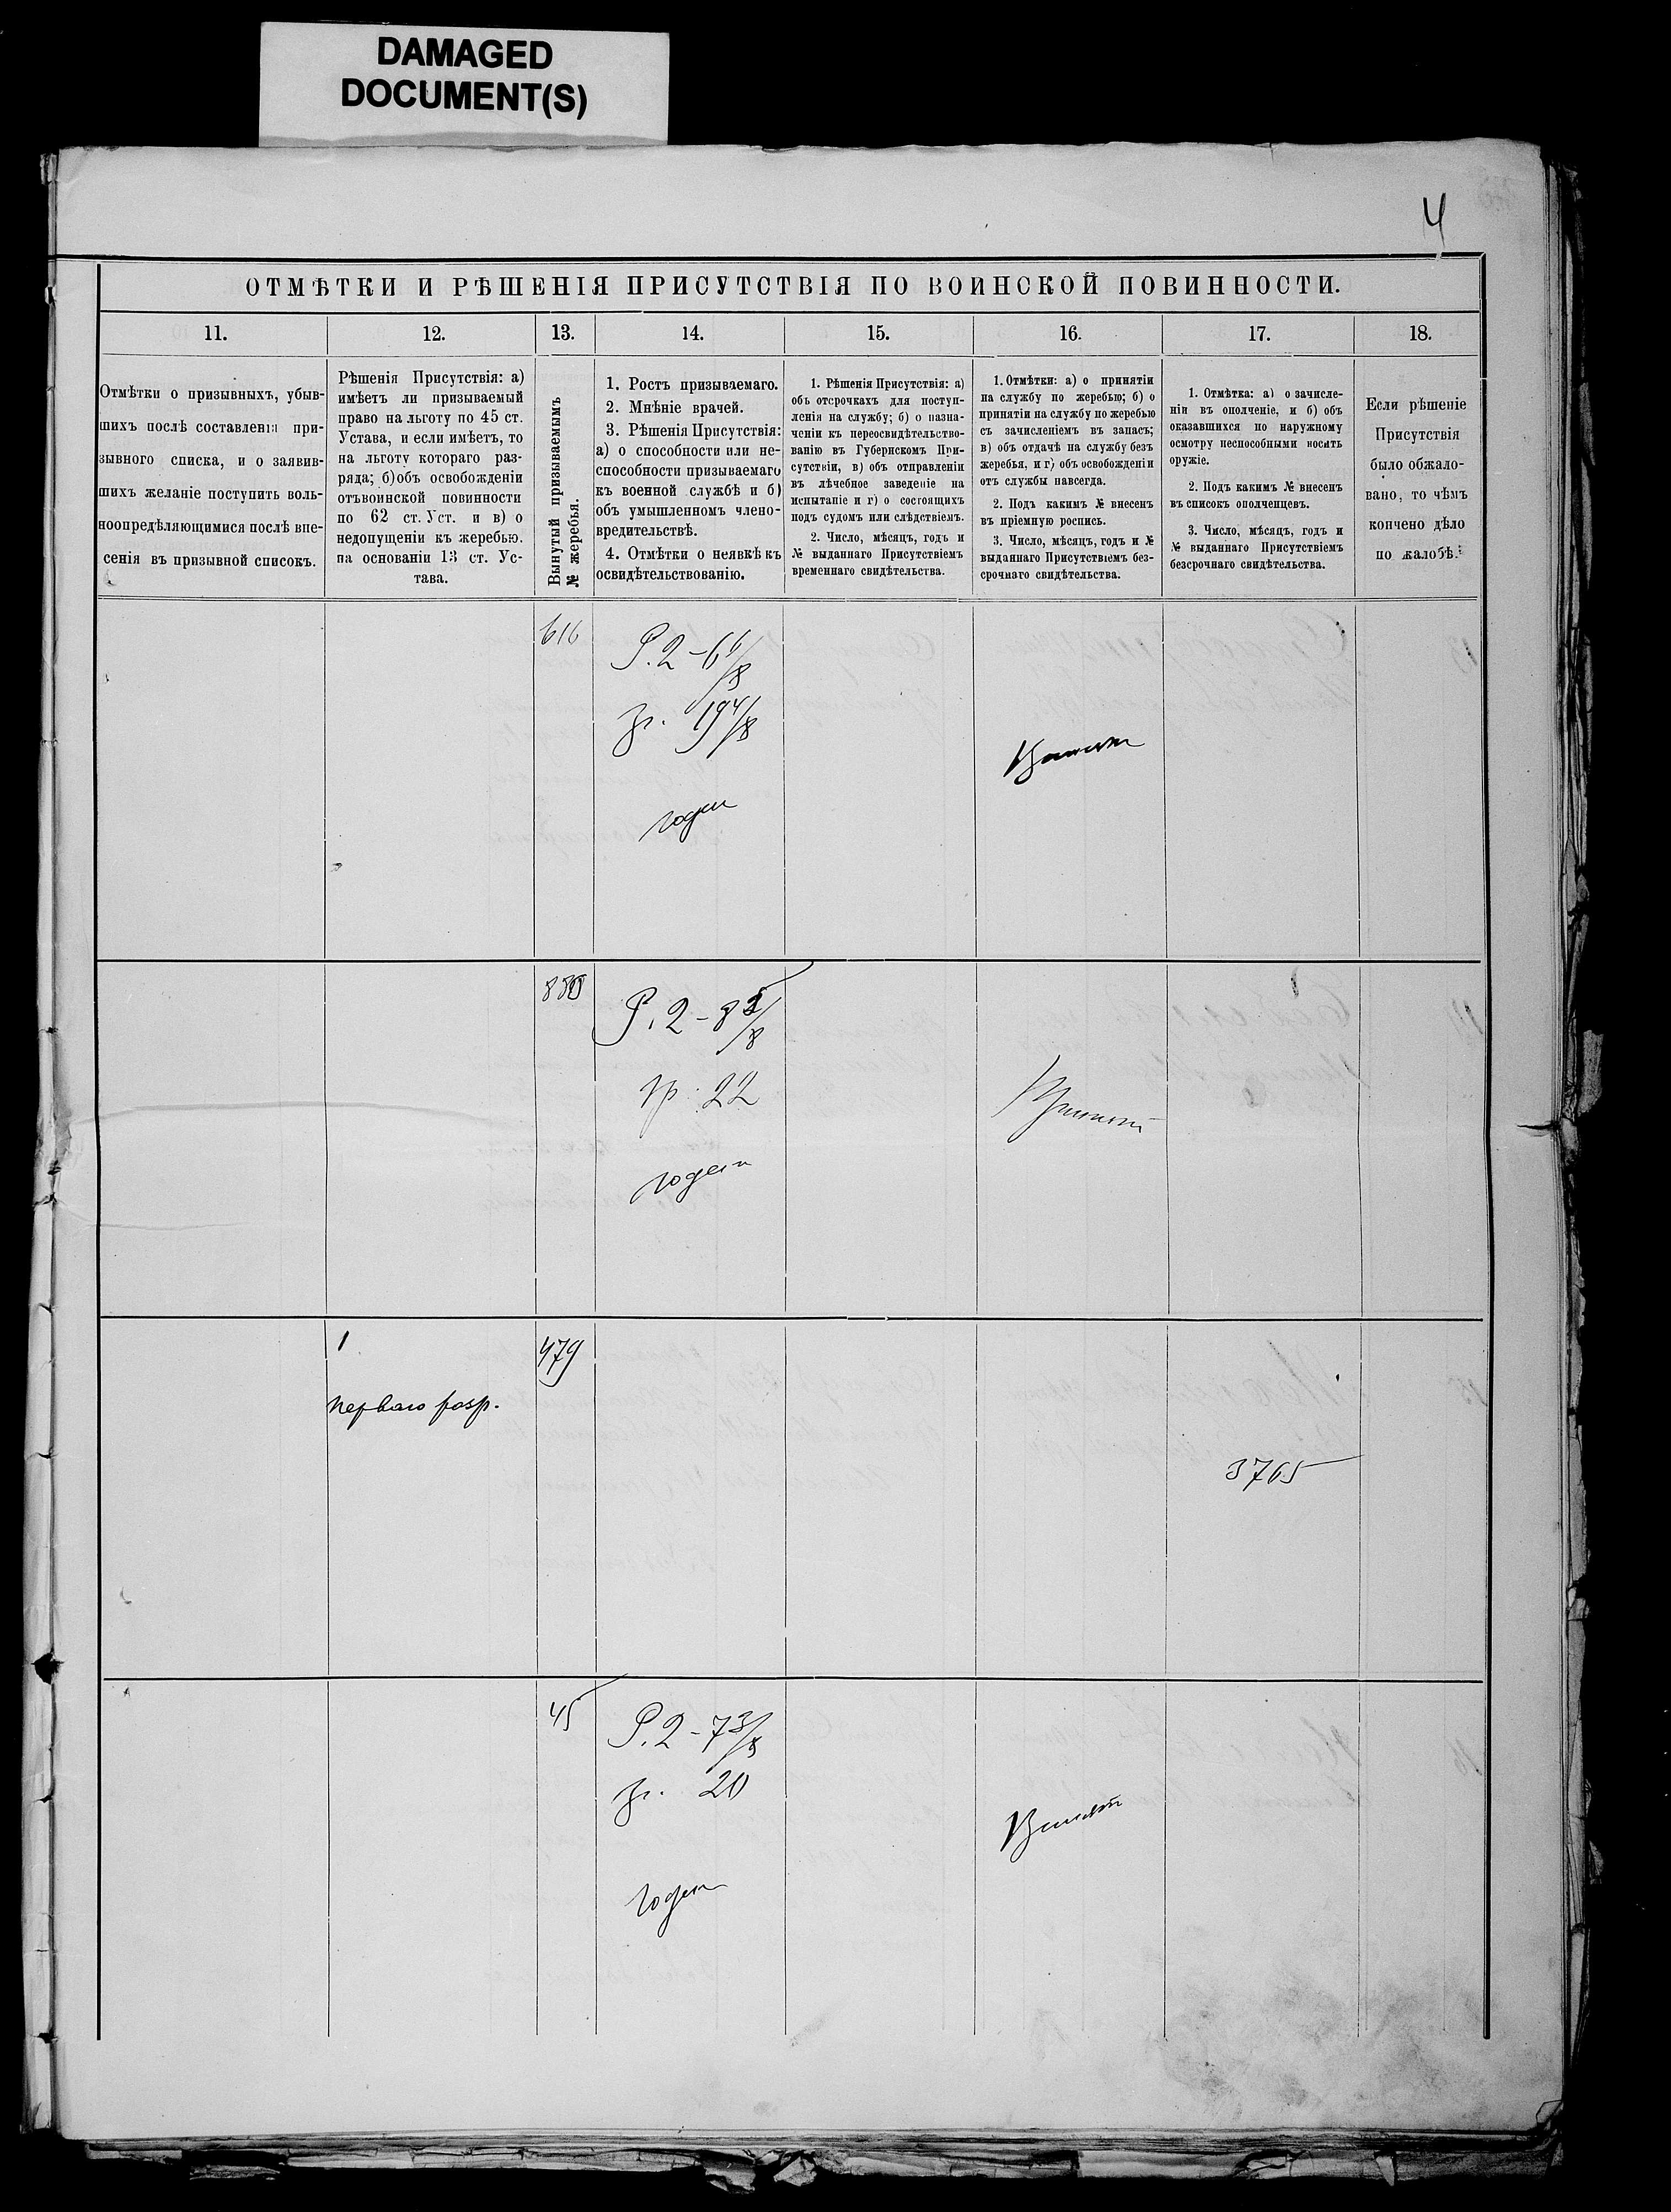 DAMAGED
DOCUMENT(S)
4
ОТМѢТКИ И РѢШЕНІЯ ПРИСУТСТВІЯ ПО ВОИНСКОЙ ПОВИННОСТИ.
11.
12.
13.
14.
15.
16.
17.
18.
Отмѣтки о призывныхъ, убыв-
шихъ послѣ составленія при-
зывного списка, и о заявив-
шихъ желаніе поступить воль-
ноопредѣляющимися послѣ вне-
сенія въ призывной списокъ.
Рѣшенія Присутствія: а)
имѣетъ ли призываемый
право на льготу по 45 ст.
Устава, и если имѣетъ, то
на льготу котораго раз-
ряда; б) объ освобожденіи
отъ воинской повинности
по 62 ст. Уст. и в) о
недопущеніи къ жеребью.
на основаніи 13 ст. Ус-
тава.
Вынутый призываемымъ
№ жеребья.
1. Ростъ призываемаго.
2. Мнѣніе врачей.
3. Рѣшенія Присутствія:
а) о способности или не-
способности призываемаго
къ военной службѣ и б)
объ умышленномъ члено-
вредительствѣ.
4. Отмѣтки о неявкѣ къ
освидѣтельствованію.
1. Рѣшенія Присутствія: а)
объ отсрочкахъ для поступ-
ленія на службу; б) о назна-
ченіи къ переосвидѣтельство-
ванію въ Губернскомъ При-
сутствіи, в) объ отправленіи
въ лѣчебное заведеніе на
испытаніе и г) о состоящихъ
подъ судомъ или слѣдствіемъ.
2. Число, мѣсяцъ, годъ и
№ выданнаго Присутствіемъ
временнаго свидѣтельства.
1. Отмѣтки: а) о принятіи
на службу по жеребью; б) о
принятіи на службу по жеребью
съ зачисленіемъ въ запасъ;
в) объ отдачѣ на службу безъ
жеребья, и г) объ освобожденіи
отъ службы навсегда.
2. Подъ какимъ № внесенъ
въ пріемную роспись.
3. Число, мѣсяцъ, годъ и №
выданнаго Присутствіемъ без-
срочнаго свидѣтельства.
1. Отмѣтка: а) о зачисле-
ніи въ ополченіе, и б) объ
оказавшихся по наружному
осмотру неспособными носить
оружіе.
2. Подъ какимъ № внесенъ
въ списокъ ополченцевъ.
3. Число, мѣсяцъ, годъ и
№ выданнаго Присутствіемъ
безсрочнаго свидѣтельства.
Если рѣшеніе
Присутствія
было обжало-
вано, то чѣмъ
кончено дѣло
по жалобѣ.
616
Р. 2 - 6 6/8
гр. 19 4/8
годен
Принят
880
Р. 2 - 8 5/8
гр. 22
годен
Принят
1
перваго разр.
479
3765
45
Р. 2 - 7 3/8
гр. 20
годен
Принят